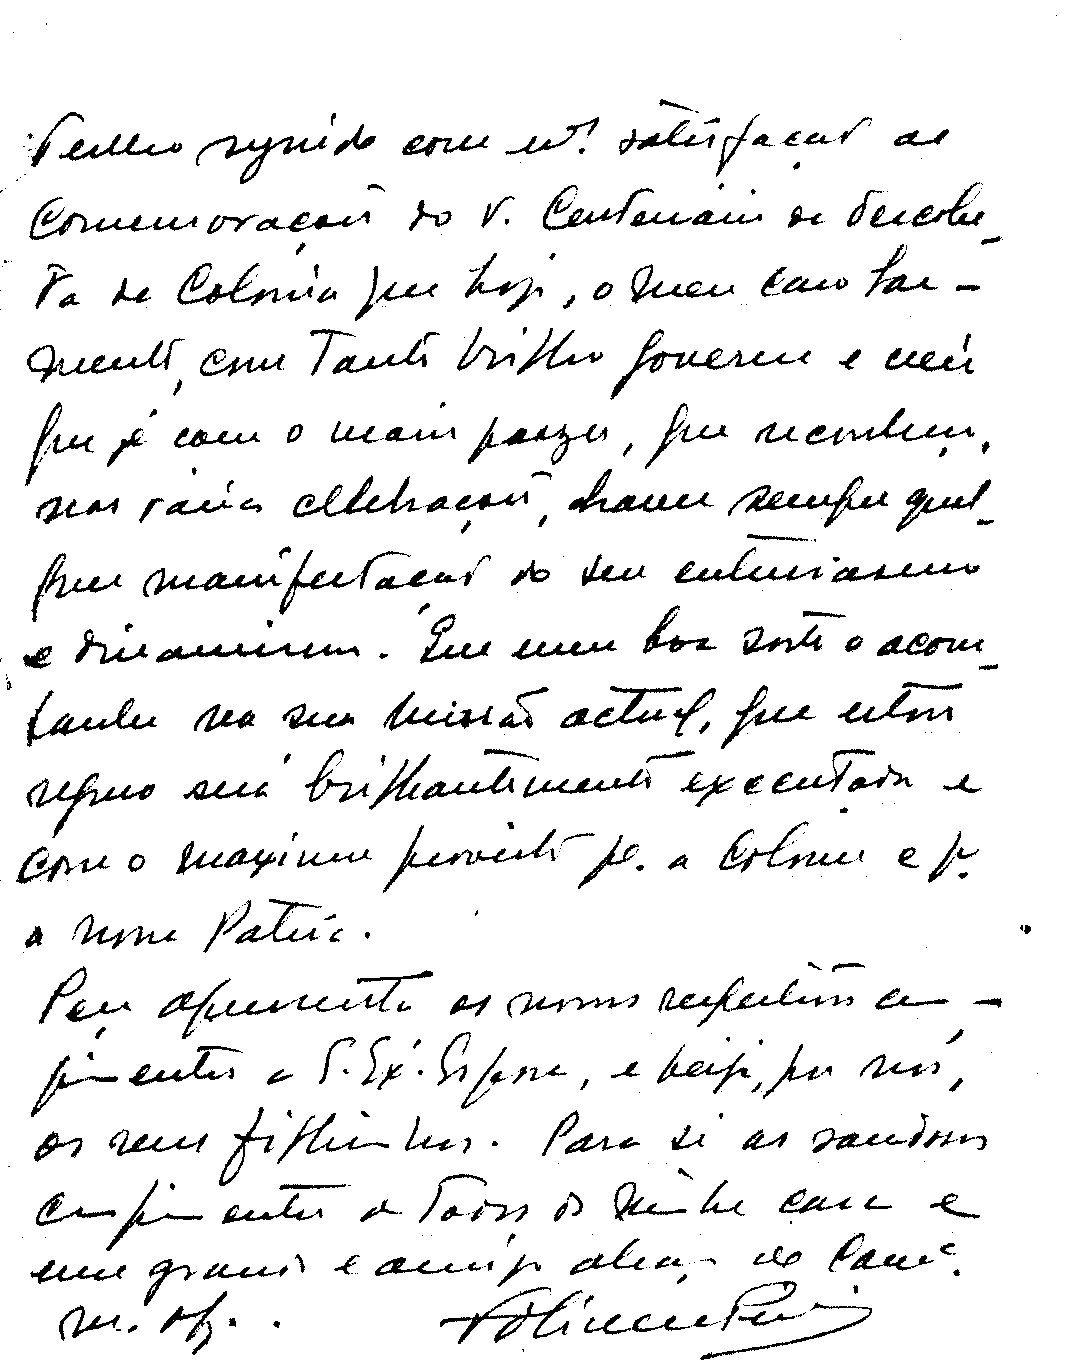 Tenho seguido com mt. satisfação as
Comemorações do V. Centenário da descober-
ta da Colónia que hoje, o meu caro Sar-
mento, com tanto brilho governa e creia
que é com o maior prazer, que reconheço,
nas várias celebrações, haver sempre qual-
quer manifestação do seu entusiasmo
e dinamismo. Que uma boa sorte o acom-
panhe na sua missão actual, que estou
seguro será brilhantemente executada e
com o maximo proveito pa. a Colonia e pa.
a nossa Patria.
Peço apresente os nossos respeitosos cum-
primentos a S. Exª. Esposa, e beije, por nós,
os seus filhinhos. Para si as saudosos
cumprimentos de todos de minha casa e
um grande e amigo abraço do Camª.
m. ob.